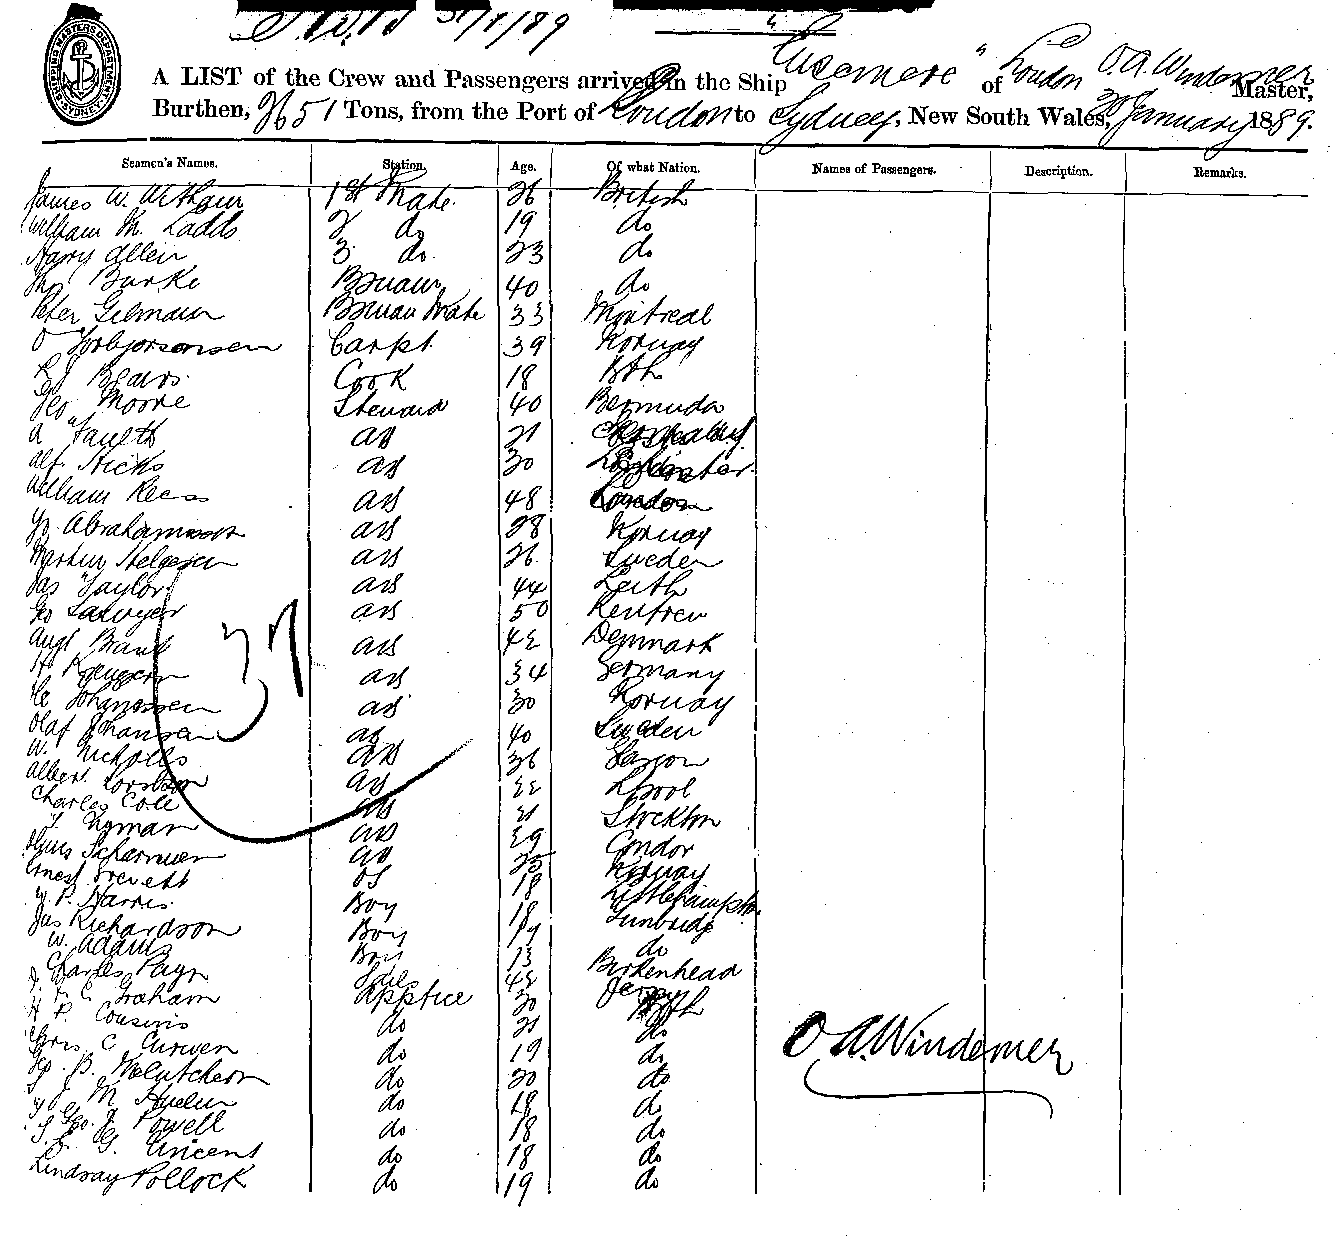 31/1/89
A LIST of the Crew and Passengers arrived in the Ship "Eusemere" of London O. A. Windemer Master,
Burthen, 2651 Tons, from the Port of London to Sydney, New South Wales, 30 January 1889.
SHIPPING MASTERS DEPARTMENT SYDNEY
Seamen's Names. Station. Age. Of what Nation. Names of Passengers. Description. Remarks.
James W. Arthur 1st Mate 26 British
William M. Ladds 2 do 19 do
Harry Allen 3 do 23 do
Burke Bosuan 40 do
Peter Gilman Bosuan Mate 33 Montreal
O Torbjorsensen Carpt 39 Norway
Bears Cook 18 Bth
Geo Moore Steward 40 Bermuda
A ab 21
Alf. Hicks ab 30
William Reess ab 48 London
Abrahamsson ab 28 Norway
Martin Helgesen ab 26 Sweden
Jas Taylor ab 44 Leith
Geo Sawyer ab 50 Renfrew
Augt Brant ab 42 Denmark
H ab 34 Germany
Johanssen ab 30 Norway
Olaf Johansen ab 40 Sweden
W. Nicholls ab 36
Albert ab 22 Lpool
Charles Cole ab 21 Stockton
Nyman ab 29 London
ab 25 Norway
Ernest Brevett OS 18 Littlehampton
P. Harris Boy 18 Tunbridge
Jas Richardson Boy 17 do
W. Adams Boy 13 Birkenhead
Charles Payn 42 Jersey
Graham Apptice 20 Bth
H P. Cousins do 21 do
Chris. C. Curwen do 19 do
B. McCutcheon do 20 do
M do 18 do
Geo. J. Powell do 18 do
G. Vincent do 18 do
Lindsay Pollock do 19 do
37
O A. Windemer